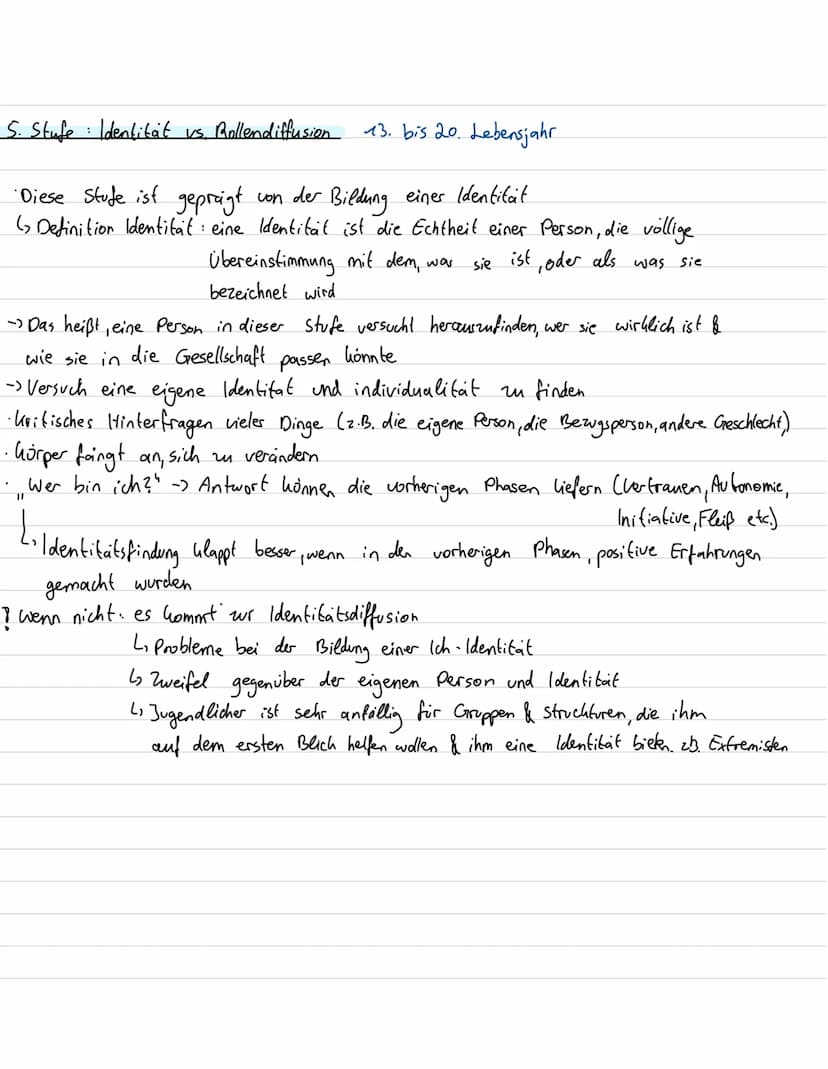 5. Stufe : Identität vs. Rollendiffusion 13. bis 20. Lebensjahr
· Diese Stufe ist geprägt von der Bildung einer Identität
↳ Definition Identität : eine Identität ist die Echtheit einer Person, die völlige
Übereinstimmung mit dem, was sie ist, oder als was sie
bezeichnet wird
-> Das heißt, eine Person in dieser Stufe versucht herauszufinden, wer sie wirklich ist &
wie sie in die Gesellschaft passen könnte
-> Versuch eine eigene Identität und individualität zu finden
· kritisches Hinterfragen vieler Dinge (z.B. die eigene Person, die Bezugsperson, andere Geschlecht)
· Körper fängt an, sich zu verändern
· „Wer bin ich?" -> Antwort können die vorherigen Phasen liefern (Vertrauen, Autonomie,
Initiative, Fleiß etc.)
↳ Identitätsfindung klappt besser, wenn in den vorherigen Phasen, positive Erfahrungen
gemacht wurden
? wenn nicht: es kommt zur Identitätsdiffusion
↳ Probleme bei der Bildung einer Ich-Identität
↳ Zweifel gegenüber der eigenen Person und Identität
↳ Jugendlicher ist sehr anfällig für Gruppen & Strukturen, die ihm
auf dem ersten Blick helfen wollen & ihm eine Identität bieten. zb. Extremisten